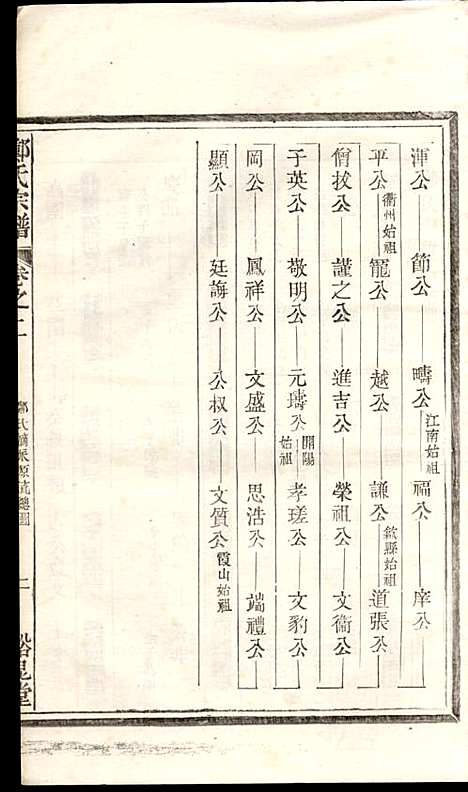 渾公 節公 疇公 江南始祖 福公 庠公
平公 衢州始祖 寵公 越公 謙公 歙縣始祖 道張公
僧拔公 謹之公 進吉公 榮祖公 文衞公
于英公 敬明公 元璹公 開陽始祖 孝瑳公 文豹公
岡公 鳳祥公 文盛公 思浩公 端禮公
顯公 廷誨公 公叔公 文質公 霞山始祖
鄭氏宗譜 卷之二 二